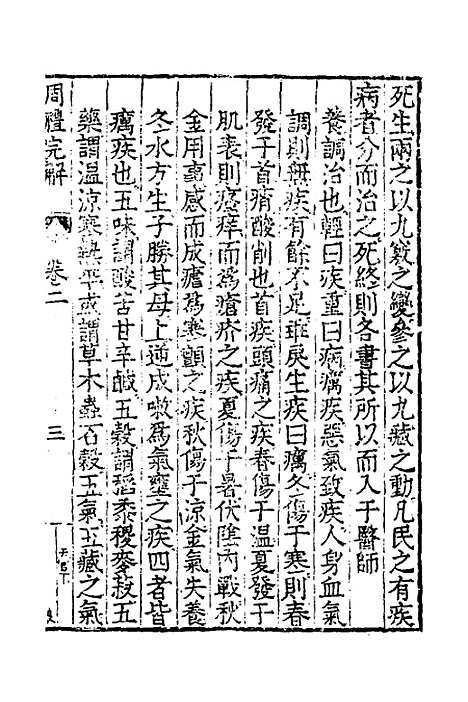 死生兩之以九竅之變參之以九藏之動凡民之有疾
病者分而治之死終則各書其所以而入于醫師
養謂治也輕曰疾重曰病癘疾惡氣致疾人身血氣
調則無疾有餘不足乖戾生疾曰癘冬傷于寒則春
發于首痟酸削也首疾頭痛之疾春傷于溫夏發于
肌表則癢痒而爲瘡疥之疾夏傷于暑伏陰內戰秋
金用事感而成瘧爲寒顫之疾秋傷于涼金氣失養
冬水方生子勝其母上逆成嗽爲氣壅之疾四者皆
癘疾也五味謂酸苦甘辛鹹五穀謂稻黍稷麥菽五
藥謂溫涼寒熱平或謂草木蟲石穀五氣五藏之氣
周禮完解
卷二
三